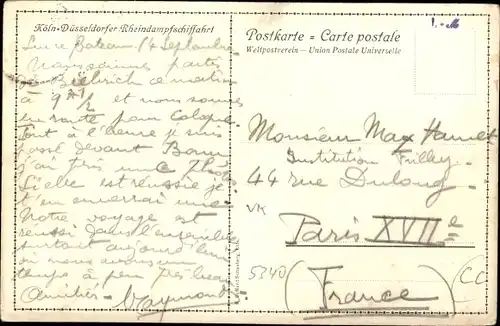 Köln-Düsseldorfer Rheindampfschiffahrt
Postkarte = Carte postale
Weltpostverein — Union Postale Universelle
Sur le Bateau 14 Septembre
Nous sommes partis
de Biebrich ce matin
à 9h 1/2 et nous sommes
en route pour Cologne
Tout à l'heure je suis
passé devant Bonn
j'ai pris une Photo
Si elle est réussie je
t'en enverrai une
Notre voyage est
réussi dans l'ensemble
surtout aujourd'hui
où nous avons un
temps à peu près beau
Amitiés Raymond
Monsieur Max
Institution
44 rue Dulong
VK
Paris XVIIe
5340
(France)
CC